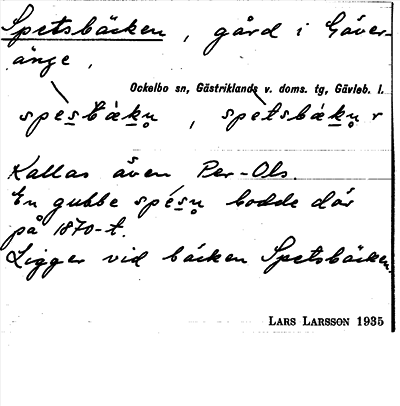 Spetsbäcken, gård i Gäver-
änge,
Ockelbo sn, Gästriklands v. doms. tg, Gävleb. l.
spesbäkn̥, spetsbäkn̥ r
Kallas även Per-Ols.
En gubbe spésn̥ bodde där
på 1870-t.
Ligger vid bäcken Spetsbäcken.
LARS LARSSON 1935